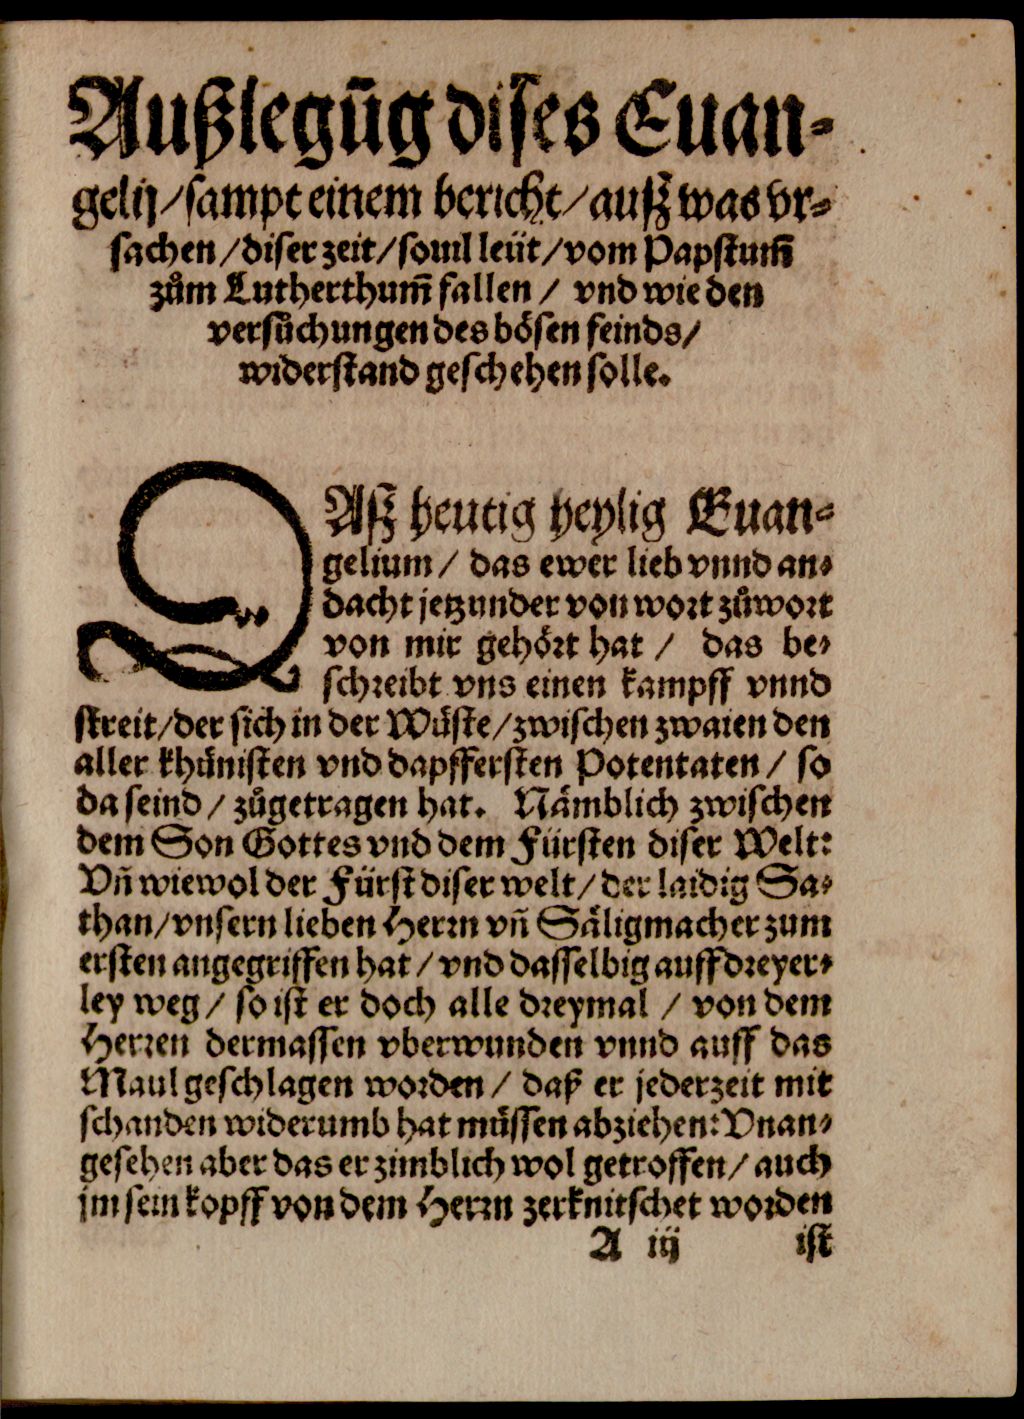 Außlegūg dises Euan-
gelij/sampt einem bericht/auß was vr-
sachen/diser zeit/souil leüt/vom Papstum̃
zům Lutherthum̃ fallen/ vnd wie den
versůchungen des bösen feinds/
widerstand geschehen solle.
DAß heutig heylig Euan-
gelium/ das ewer lieb vnnd an-
dacht jetzunder von wort zůwort
von mir gehört hat/ das be-
schreibt vns einen kampff vnnd
streit/der sich in der Wüste/zwischen zwaien den
aller khünisten vnd dapffersten Potentaten/ so
da seind/ zůgetragen hat. Nämblich zwischen
dem Son Gottes vnd dem Fürsten diser Welt:
Vñ wiewol der Fürst diser welt/ der laidig Sa-
than/vnsern lieben Herrn vñ Säligmacher zum
ersten angegriffen hat/ vnd dasselbig auff dreyer-
ley weg/ so ist er doch alle dreymal/ von dem
Herren dermassen vberwunden vnnd auff das
Maul geschlagen worden/ daß er jederzeit mit
schanden widerumb hat müssen abziehen: Vnan-
gesehen aber das er zimblich wol getroffen/ auch
jm sein kopff von dem Herrn zerknitschet worden
A iij ist